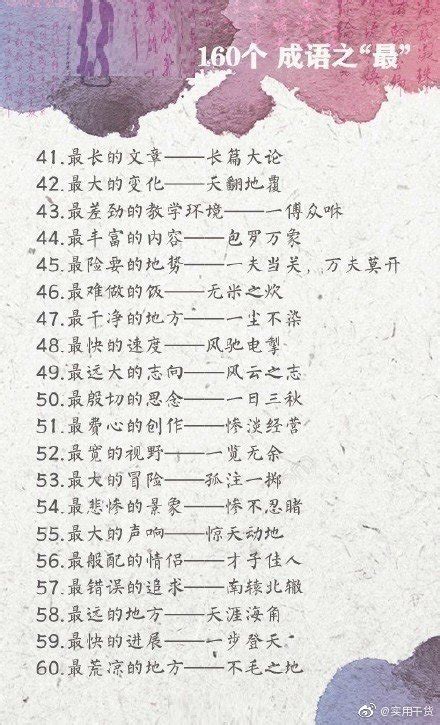 160个 成语之“最”
41.最长的文章——长篇大论
42.最大的变化——天翻地覆
43.最差劲的教学环境——一傅众咻
44.最丰富的内容——包罗万象
45.最险要的地势——一夫当关，万夫莫开
46.最难做的饭——无米之炊
47.最干净的地方——一尘不染
48.最快的速度——风驰电掣
49.最远大的志向——风云之志
50.最殷切的思念——一日三秋
51.最费心的创作——惨淡经营
52.最宽的视野——一览无余
53.最大的冒险——孤注一掷
54.最悲惨的景象——惨不忍睹
55.最大的声响——惊天动地
56.最般配的情侣——才子佳人
57.最错误的追求——南辕北辙
58.最远的地方——天涯海角
59.最快的进展——一步登天
60.最荒凉的地方——不毛之地
@实用干货